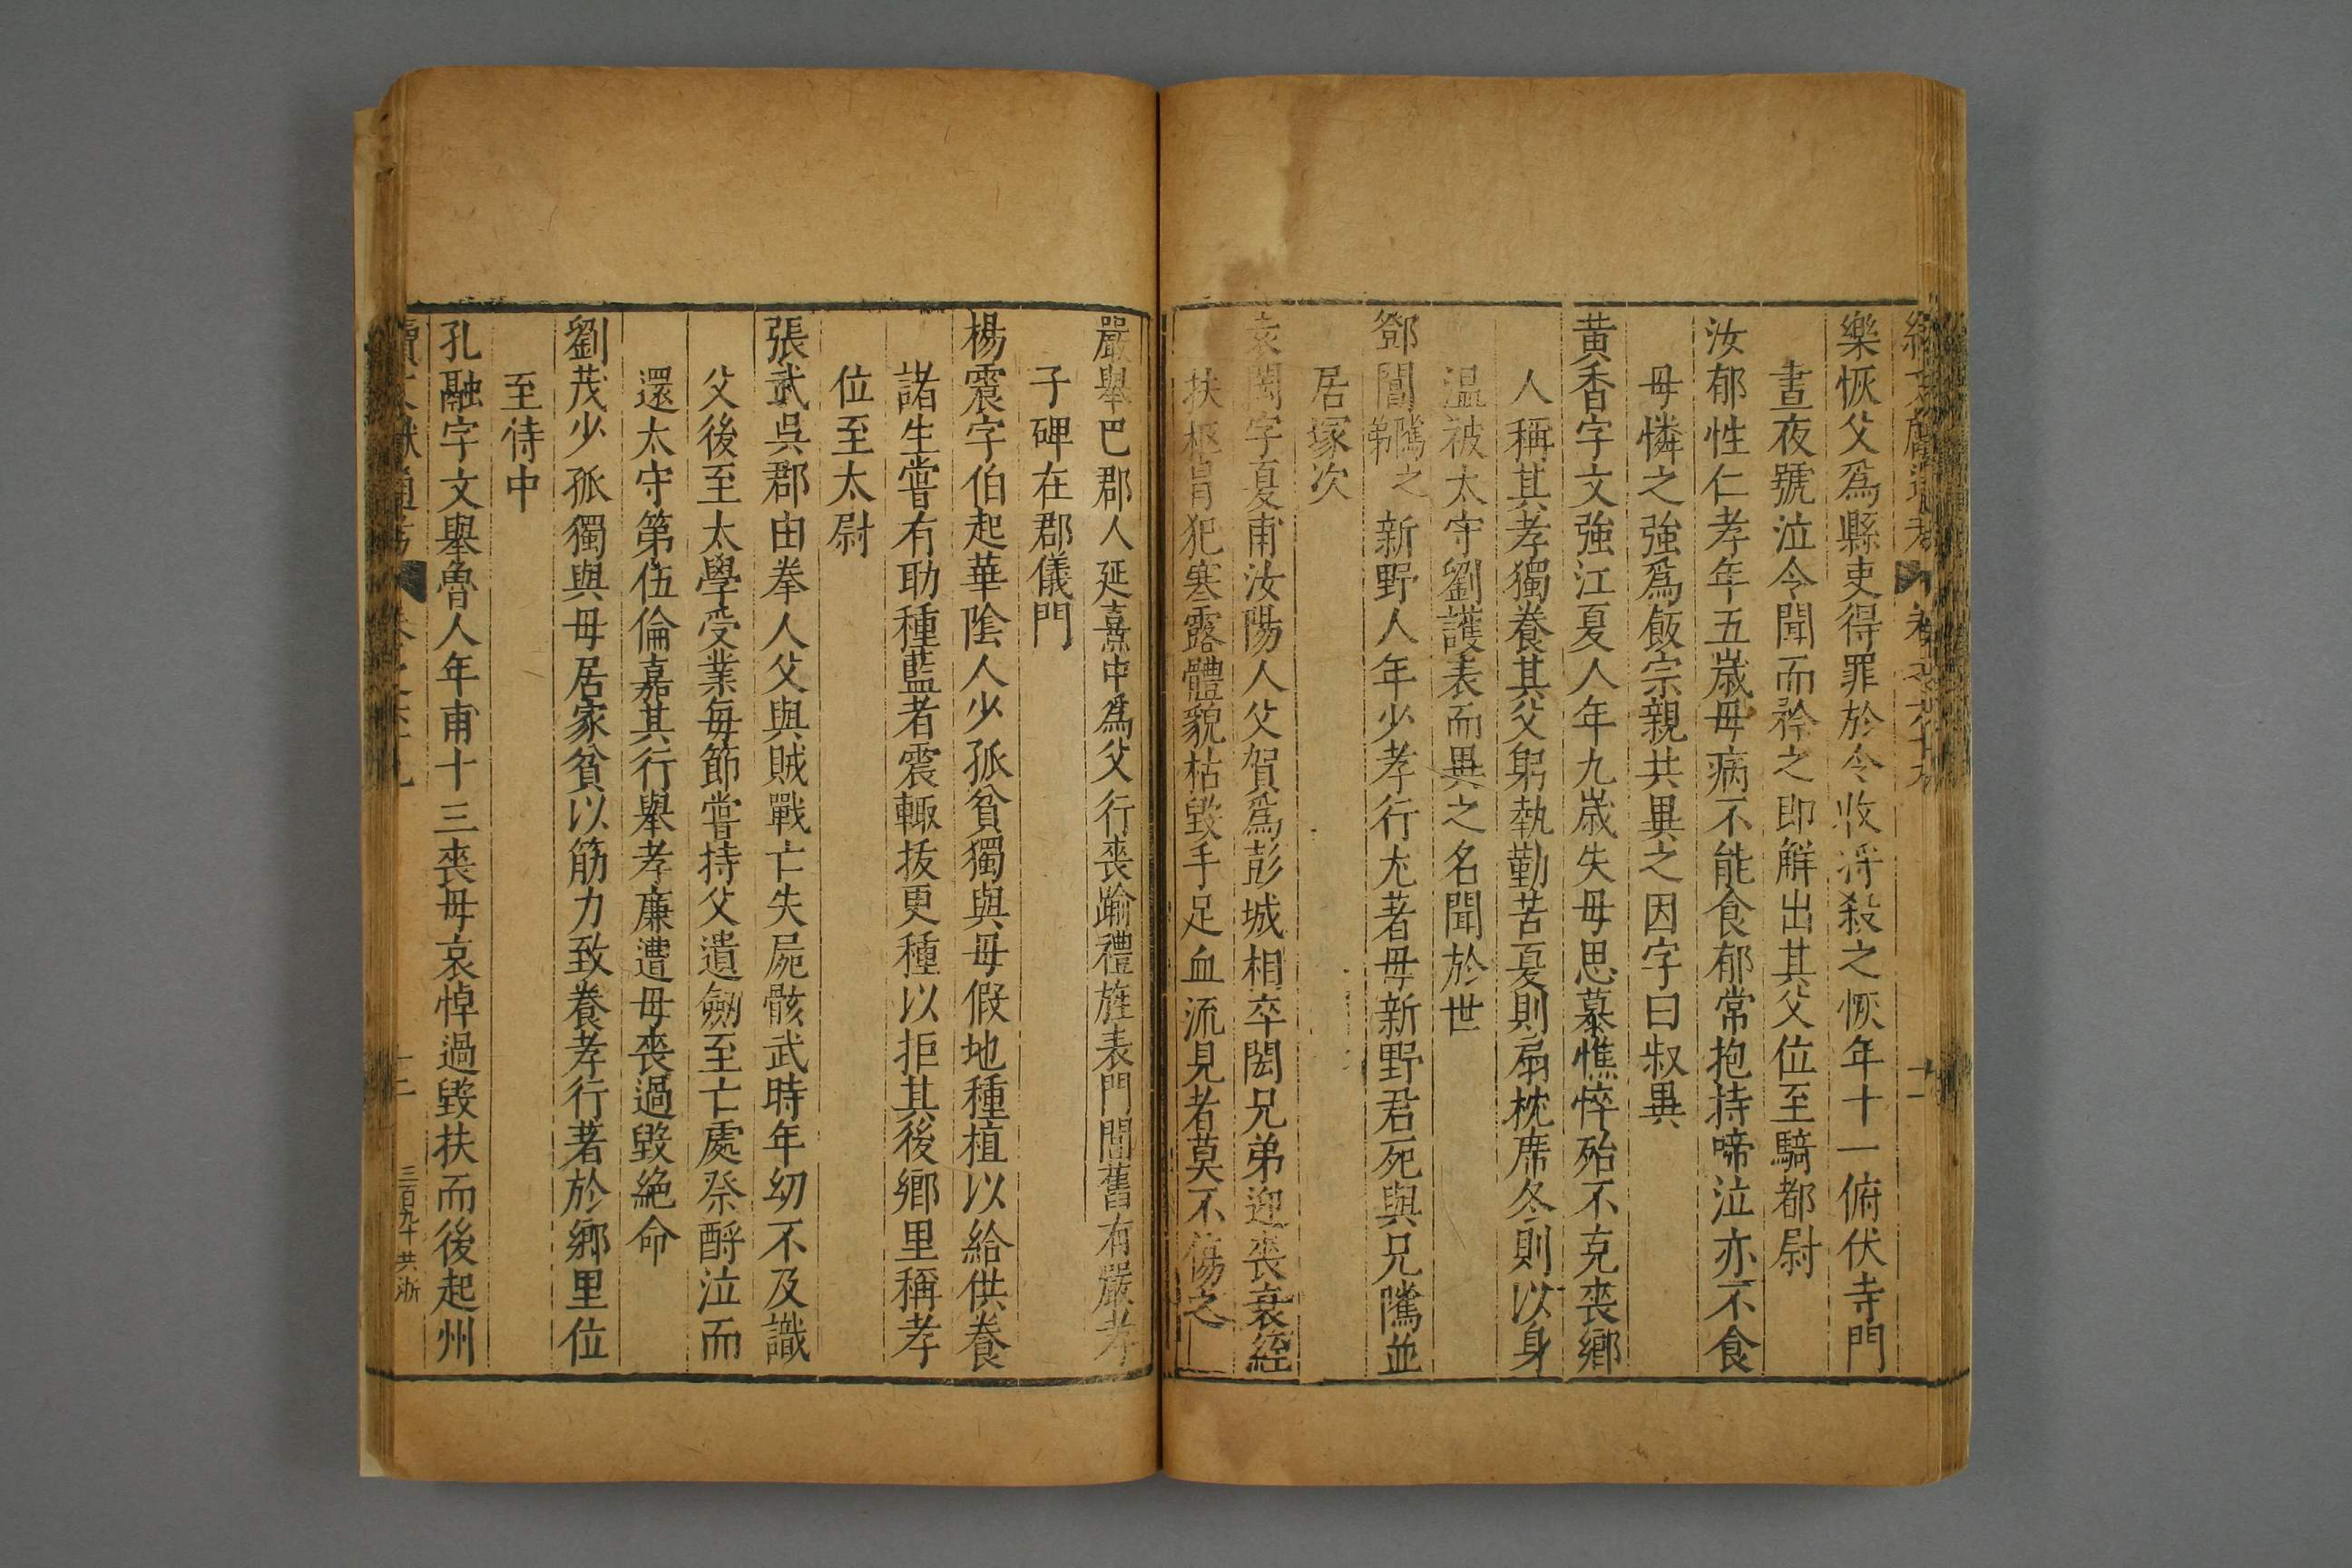 續文獻通考 卷之六十九 十一
樂恢父爲縣吏得罪於令收將殺之恢年十一俯伏寺門
晝夜號泣令聞而矜之即解出其父位至騎都尉
汝郁性仁孝年五歲母病不能食郁常抱持啼泣亦不食
母憐之強爲飯宗親共異之因字曰叔異
黃香字文強江夏人年九歲失母思慕憔悴殆不克喪鄉
人稱其孝獨養其父躬執勤苦夏則扇枕席冬則以身
温被太守劉護表而異之名聞於世
鄧閶騭之弟新野人年少孝行尤著母新野君死與兄隲並
居塚次
袁閎字夏甫汝陽人父賀爲彭城相卒閎兄弟迎喪衰絰
扶柩冒犯寒露體貌枯毀手足血流見者莫不傷之
嚴舉巴郡人延熹中爲父行喪踰禮旌表門閭舊有嚴孝
子碑在郡儀門
楊震字伯起華陰人少孤貧獨與母假地種植以給供養
諸生嘗有助種藍者震輒拔更種以拒其後鄉里稱孝
位至太尉
張武吳郡由拳人父與賊戰亡失屍骸武時年幼不及識
父後至太學受業每節嘗持父遺劒至亡處祭酹泣而
還太守第伍倫嘉其行舉孝廉遭母喪過毀絕命
劉茂少孤獨與母居家貧以筋力致養孝行著於鄉里位
至侍中
孔融字文舉魯人年甫十三喪母哀悼過毀扶而後起州
續文獻通考 卷之六十九 十二 三百九十 共浙